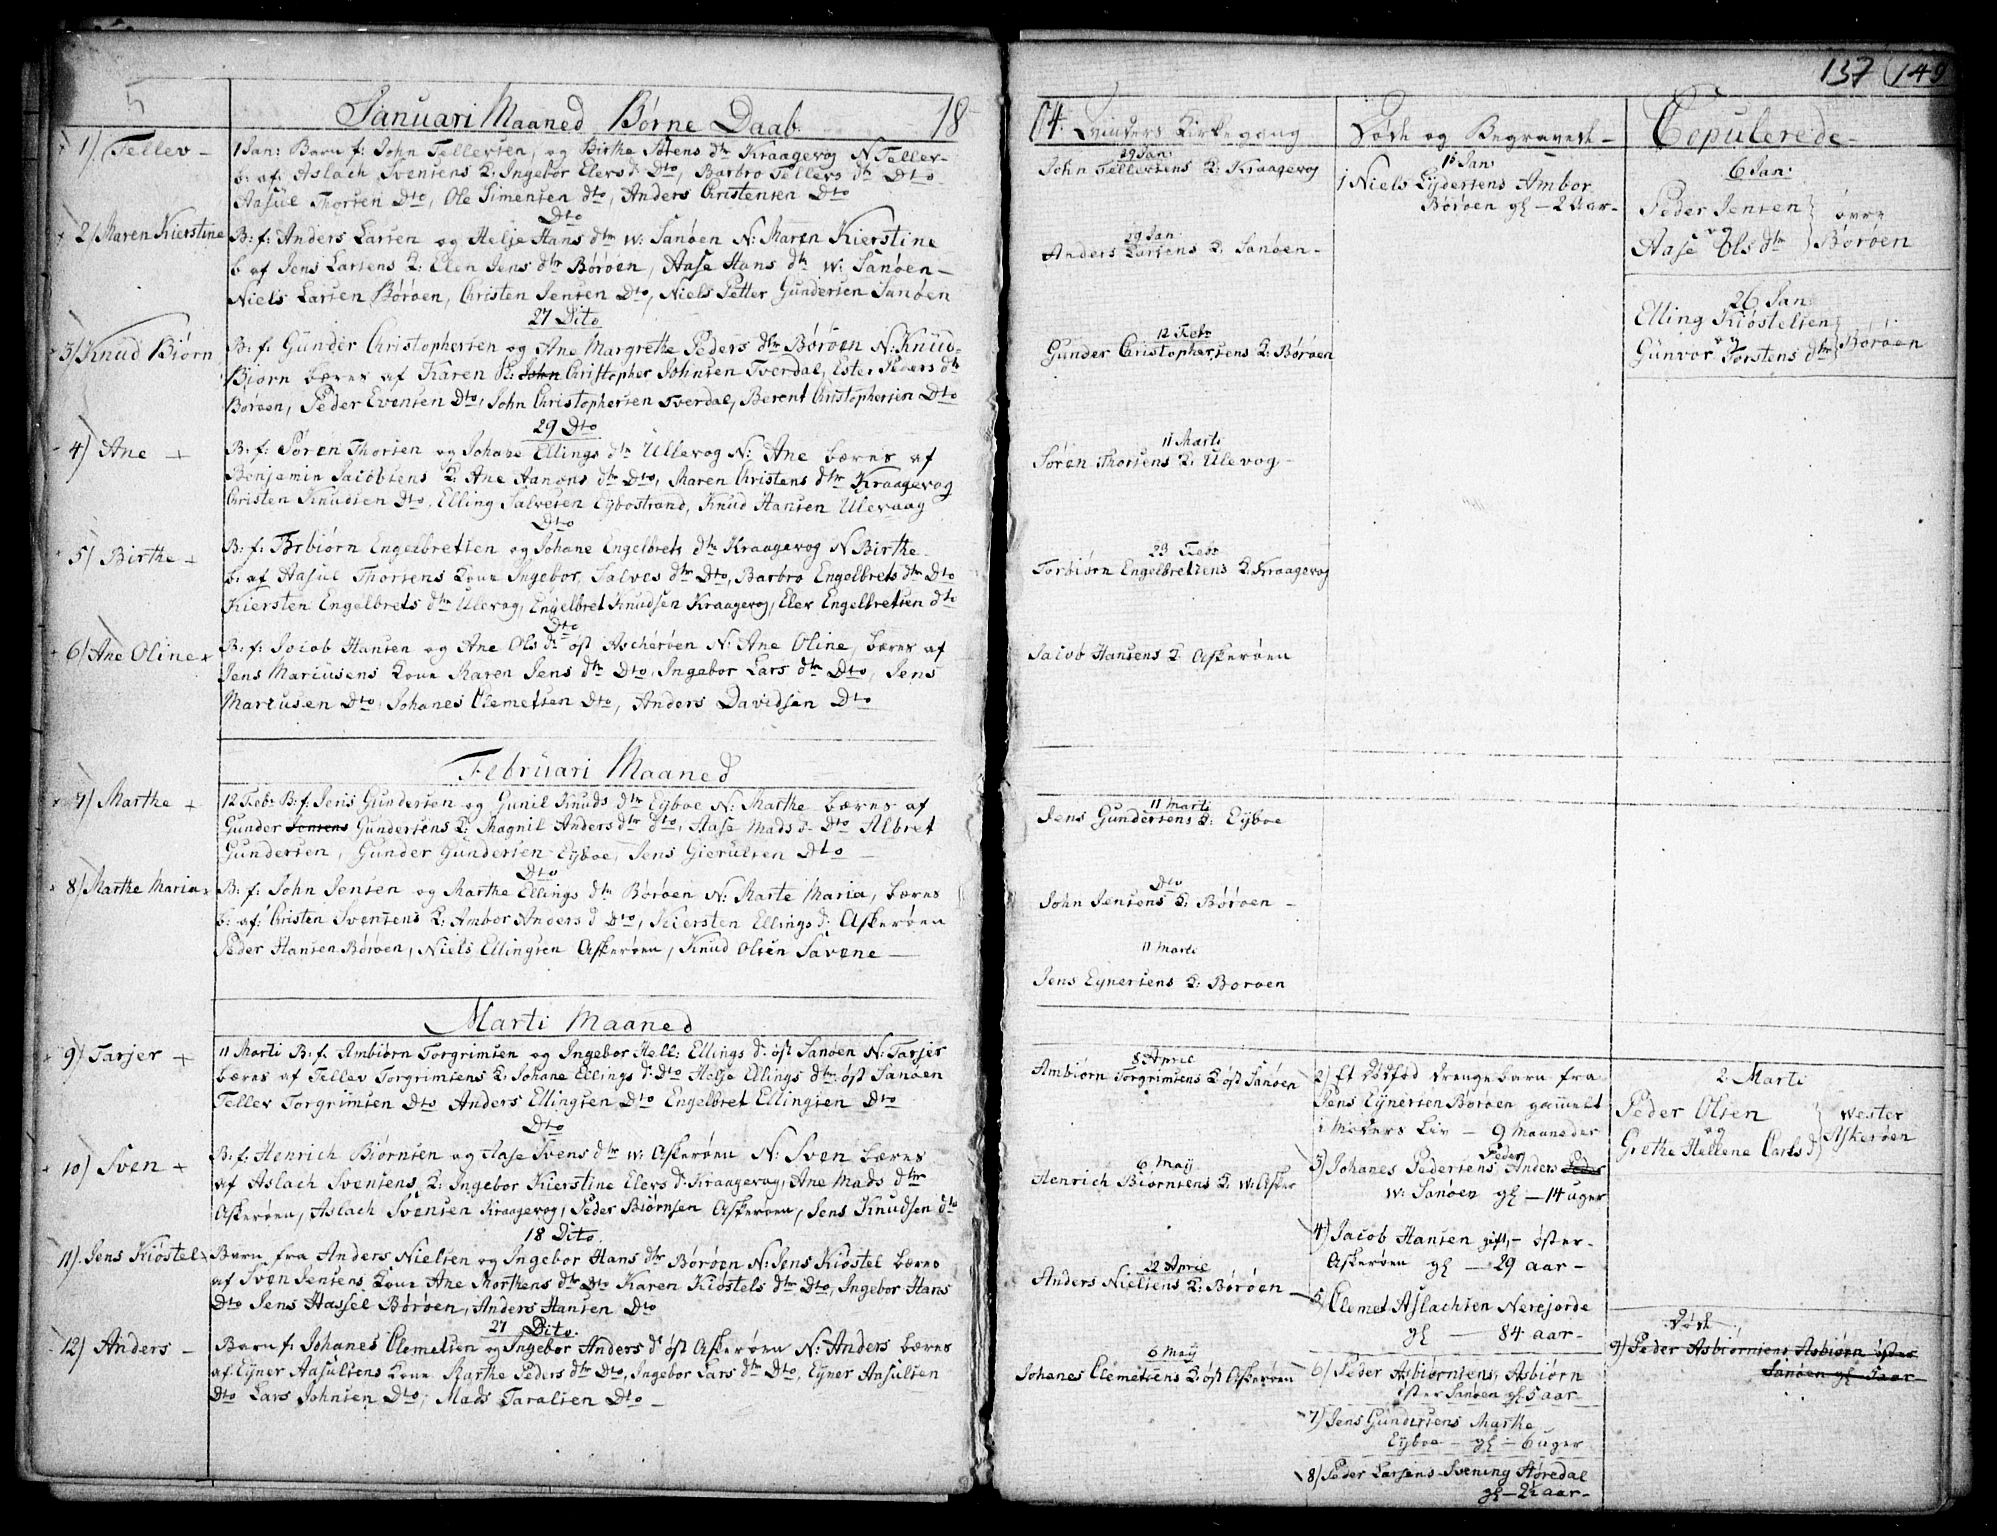 5
Januari Maaned Børne Daab. 18
1) Tellev –
1 Jan: Barn f: John Tellevsen, og Birthe Sørens dtr Kraagevog N Tellev –
b: af: Aslach Svensens K: Ingebor Elevs d: Dto, Barbro Tellevs dtr Dto
Aasul Thorsen Dto, Ole Simensen dto, Anders Christensen Dto
Dto
2) Maren Kierstine
B: f: Anders Larsen og Helje Hans dtr w: Sanøen N: Maren Kierstine
b af Jens Larsens K: Elen Jens dtr Børøen, Aase Hans dtr w: Sanøen –
Niels Larsen Børøen, Christen Jensen Dto, Niels Petter Gundersen Sanøen
27 Dito
3) Knud Biørn
B: f: Gunder Christophersen og Ane Margrethe Peders dtr Børøen N: Knud
Biørn bæres af Karen K: John Christopher Johnsen Tverdal, Ester Peders dtr
Børøen, Peder Evensen Dto, John Christophersen Tverdal, Berent Christophersen Dto
29 Dto
4) Ane +
B: f: Søren Thorsen og Johane Ellings dtr Ullevog N: Ane bæres af
Benjamin Jacobsens K: Ane Aanons dtr Dto, Maren Christens dtr Kraagevog
Christen Knudsen Dto, Elling Salvesen Eybostrand, Knud Hansen Ulevaag
Dto
5) Birthe +
B: f: Torbiørn Engelbretsen og Johane Engelbrets dtr Kraagevog N Birthe
b: af Aasul Thorsens Kone Ingebor Salves dtr Dto, Barbro Engelbrets dtr Dto
Kiersten Engelbrets dtr Ulevog, Engelbret Knudsen Kraagevog, Elev Engelbretsen dto
Dto
6) Ane Oline +
B: f: Jocob Hansen og Ane Ols d: øst Ascherøen N: Ane Oline, bæres af
Jens Marcusens Kone Karen Jens dtr Dto, Ingebor Lars dtr Dto, Jens
Marcusen Dto, Johanes Clemetsen Dto, Anders Davidsen Dto
Februari Maaned
7) Marthe +
12 Feb: B: f: Jens Gundersen og Gunil Knuds dtr Eyboe N: Marthe bæres af
Gunder Jensens Gundersens K: Magnil Anders dtr dto, Aase Mads d: Dto Albret
Gundersen, Gunder Gundersen Eyboe, Jens Gierulsen Dto –
Dto
8) Marthe Maria +
B: f: John Jensen og Marthe Ellings dtr Børøen N: Marte Maria, bæres
b: af: Christen Svensens K: Ambor Anders d Dto, Kiersten Ellings d: Askerøen
Peder Hansen Børøen, Niels Ellingsen Askerøen, Knud Olsen Savene –
Marti Maaned
9) Tarjer +
11 Marti B: f. Ambiørn Torgrimsen og Ingebor Hell: Ellings d: øst Sanøen N: Tarjer
bæres af Tellev Torgrimsens K: Johane Ellings d: Dto Helje Ellings dtr: øst Sanøen
Tellev Torgrimsen Dto Anders Ellingsen Dto Engelbret Ellingsen Dto
Dto
10) Sven +
B: f: Henrich Biørnsen og Aase Svens dtr w: Askerøen N: Sven bæres
af Aslach Svensens K: Ingebor Kierstine Elevs d: Kraagevog, Ane Mads dtr
Askerøen, Aslach Svensen Kraagevog, Peder Biørnsen Askerøen, Jens Knudsen dto
18 Dito.
11). Jens Kiøstel +
Barn fra Anders Nielsen og Ingebor Hans dtr Børøen N: Jens Kiøstel bæres
af Sven Jensens Kone Ane Morthens dtr Dto Karen Kiøstels dtr Dto, Ingebor Hans
Dto Jens Hassel Børøen, Anders Hansen Dto
27 Dito.
12) Anders –
Barn f: Johanes Clemetsen og Ingebor Anders d: øst Askerøen N: Anders bæres
af Eyner Aasulsens Kone Marthe Peders dtr Dto, Ingebor Lars dtr Dto, Eyner Ansulsen
Dto Lars Johnsen Dto, Mads Taralsen Dto –
137 (149
04. Qvinders Kirkegang
29 Jan:
John Tellevsens K: Kraagevog
29 Jan
Anders Larsens K: Sanøen –
12 Feb:
Gunder Christophersens K: Børøen
11 Marti
Søren Thorsens K: Ulevog –
23 Feb:
Torbiørn Engelbretsens K: Kraagevog
Jacob Hansens K: Askerøen
11 Marti
Jens Gundersens K: Eyboe
Dto
John Jensens K: Børøen –
11 Marti
Jens Eynersens K: Borøen
8 Aprie
Ambiørn Torgrimsens K øst Sanøen
6 Maij
Henrich Biørnsens K: w: Asker
22 Aprie
Anders Nielsens K: Børøen –
6 Maij
Johanes Clemetsens K: øst Askerøen
Døde og Begravede –
15 Jan:
1 Niels Lydersens Ambor
Børøen gl – 2 Aar –
2) Et dødfød drengebarn fra
Jens Eynersen Børøen gammelt
i Moders Liv – 9 Maaneder
3) Johanes Pedersens Peder Anders Peder
w: Sanøen gl – 14 uger
4) Jacob Hansen gift – øster –
Askerøen gl – 29 aar –
5) Clemet Aslachsen Nerejorde
gl – 84 aar –
6) Peder Asbiørnsens Asbiørn
øster Sanøen gl 5 aar –
7) Jens Gundersens Marthe
Eyboe – gl – 6 uger
8) Peder Larsens Svening Støredal
gl – 2½ aar –
Copulerede –
6 Jan:
Peder Jensen } øvre
og
Aase Ols dtr } Børøen
26 Jan
Elling Kiøstelsen
og } Børøen
Gunvor Torstens dtr
2 Marti
Peder Olsen } Wester
og
Grethe Hellene Carls d } Askerøen
Døde
9) Peder Asbiørnsens Asbiørn øster
Sanøen gl 5 aar –